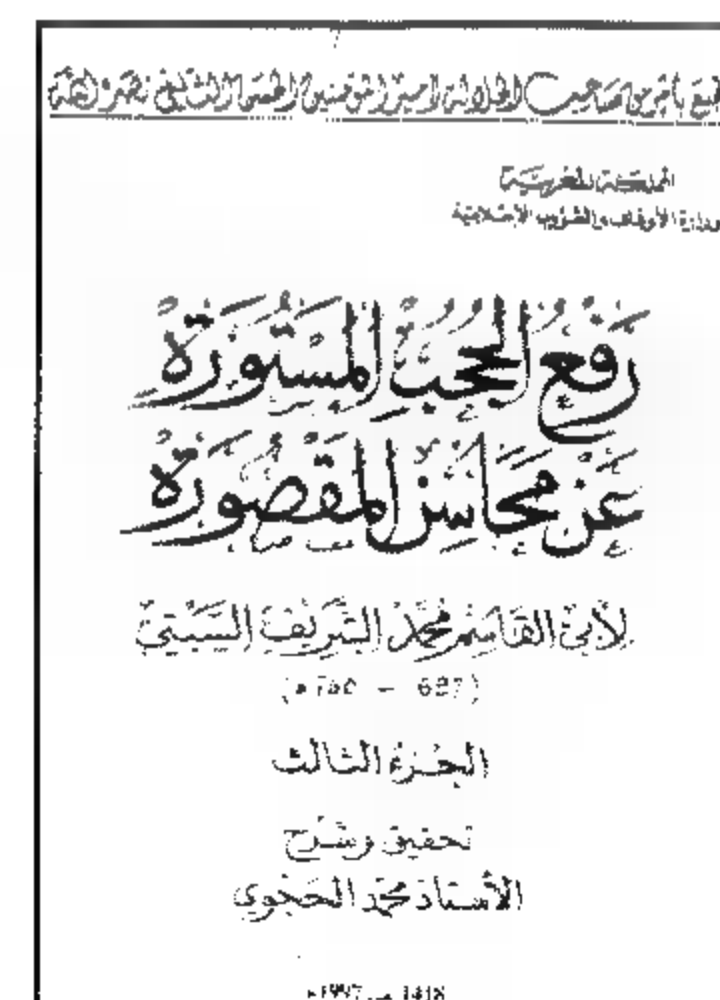 بأمر من صاحب الجلالة أمير المؤمنين الحسن الثاني نصره الله
المملكة المغربية
وزارة الأوقاف والشؤون الإسلامية
رَفْعُ الحُجُبِ المَسْتُورَةْ
عَنْ مَحَاسِنِ المَقْصُورَةْ
لأبي القاسم محمد الشريف السبتي
(697 - 760هـ)
الجزء الثالث
تحقيق وشرح
الأستاذ محمد الحجوي
1418 هـ 1997م